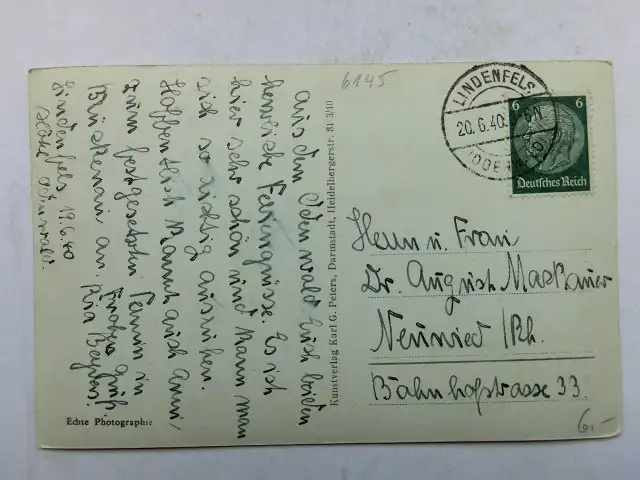 6145
Aus dem Odenwald Euch beiden
herzliche Feriengrüsse. Es ist
hier sehr schön und kann man
sich so richtig ausruhen.
Hoffentlich kannst auch
zum festgesetzten Termin in
an. Frohen Gruß
Lindenfels 19.6.40
Hotel Odenwald.
Echte Photographie
Kunstverlag Karl G. Peters, Darmstadt, Heidelbergerstr. 81 3/10
LINDENFELS
20.6.40.
(ODENWALD)
6 6
Deutsches Reich
Herrn u. Frau
Dr. August Maskauer
Neuwied /Rh.
Bahnhofstrasse 33.
6.-